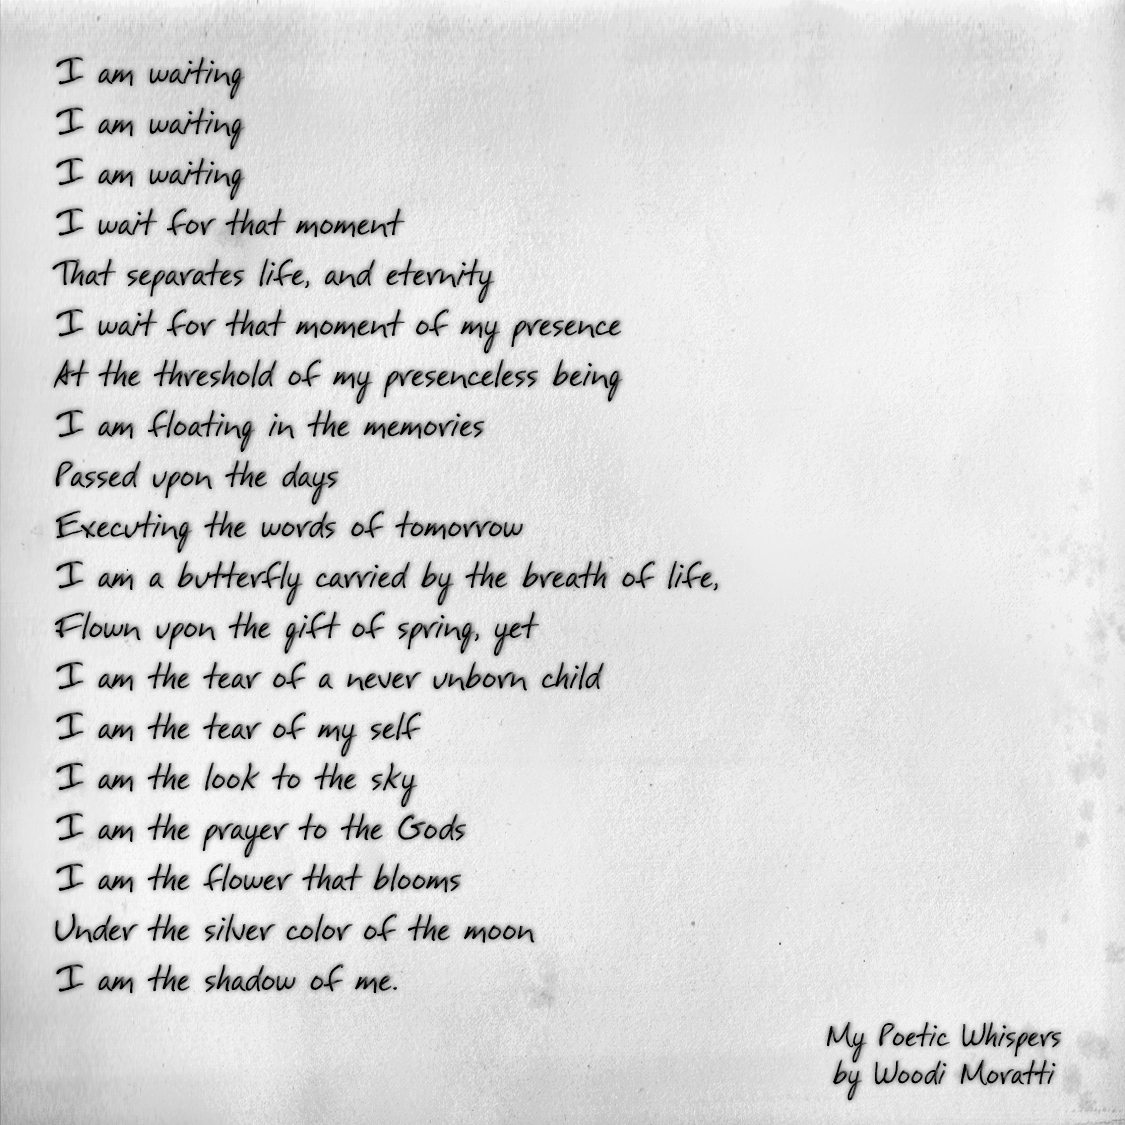 I am waiting
I am waiting
I am waiting
I wait for that moment
That separates life, and eternity
I wait for that moment of my presence
At the threshold of my presenceless being
I am floating in the memories
Passed upon the days
Executing the words of tomorrow
I am a butterfly carried by the breath of life,
Flown upon the gift of spring, yet
I am the tear of a never unborn child
I am the tear of my self
I am the look to the sky
I am the prayer to the Gods
I am the flower that blooms
Under the silver color of the moon
I am the shadow of me.
My Poetic Whispers
by Woodi Moratti